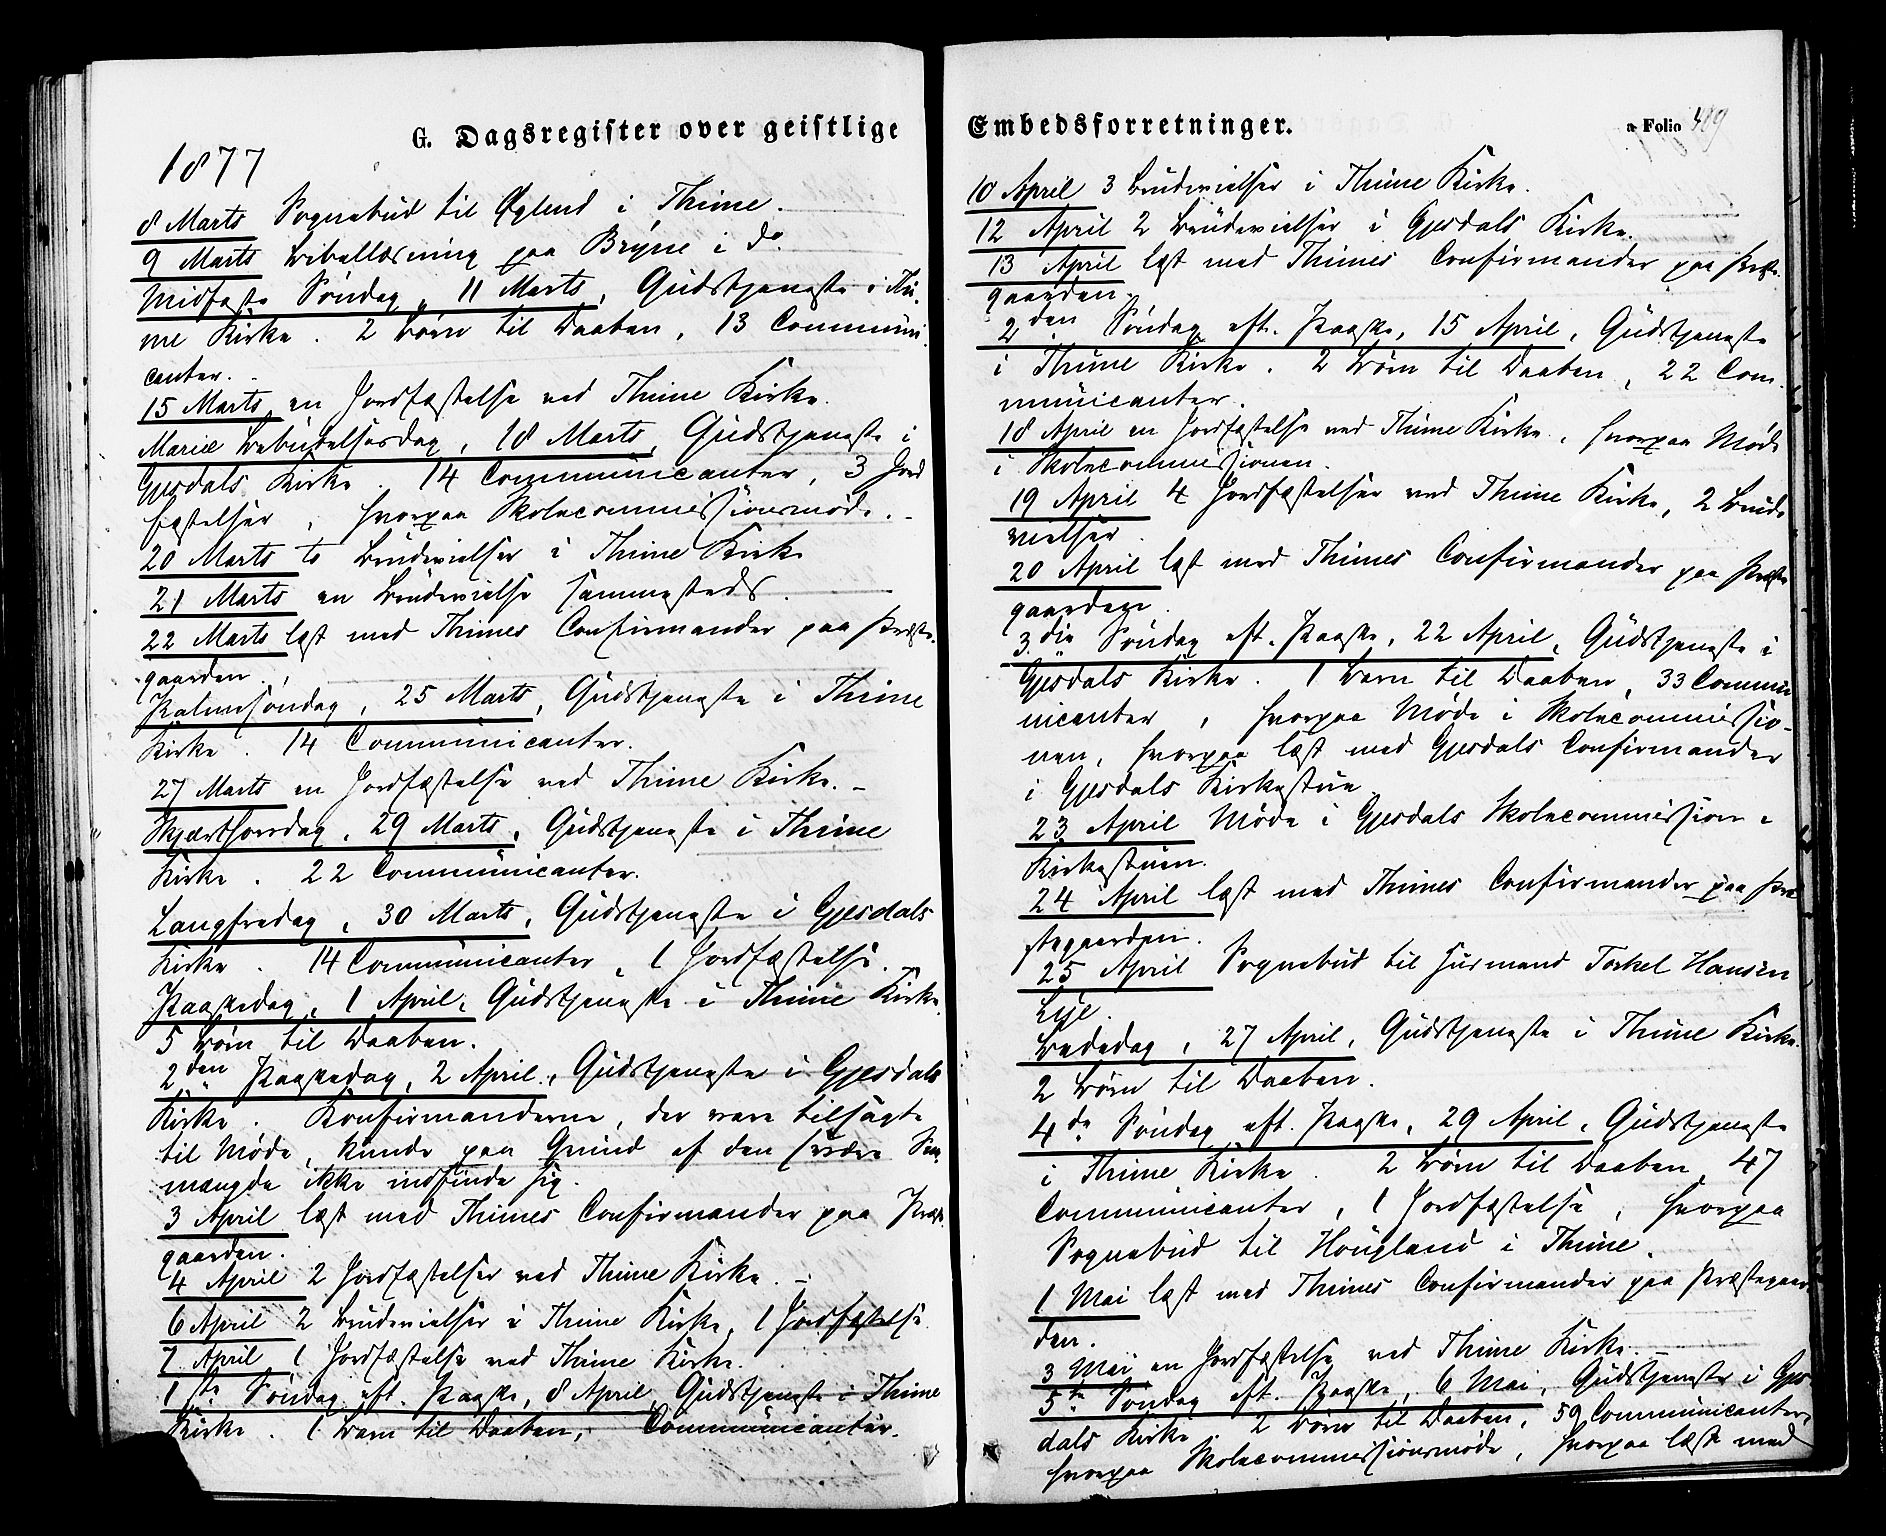 G. Dagsregister over geistlige
1877
8 Marts Sognebud til Øglend i Thime.
9 Marts Bibellæsning paa Bryne i do.
Midfaste Søndag, 11 Marts, Gudstjeneste i Thi-
me Kirke. 2 Børn til Daaben, 13 Communi-
canter.
15 Marts, en Jordfæstelse ved Thime Kirke.
Mariæ Bebudelsesdag, 18 Marts, Gudstjeneste i
Gjesdals Kirke. 14 Communicanter, 3 Jord
fæstelser, hvorpaa Skolecommissionsmøde.
20 Marts to Brudevielser i Thime Kirke
21 Marts en Brudevielse sammesteds.
22 Marts læst med Thimes Confirmander paa Præste-
gaarden.
Palmesøndag, 25 Marts, Gudstjeneste i Thime
Kirke. 14 Communicanter.
27 Marts en Jordfæstelse ved Thime Kirke.
Skjærthorsdag, 29 Marts, Gudstjeneste i Thime
Kirke. 22 Communicanter.
Langfredag, 30 Marts, Gudstjeneste i Gjesdals
Kirke. 14 Communicanter, 1 Jordfæstelse.
Paaskedag, 1 April, Gudstjeneste i Thime Kirke.
5 Børn til Daaben.
2den Paaskedag, 2 April, Gudstjeneste i Gjesdals
Kirke. Konfirmanderne, der vare tilsagte
til Møde, kunde paa Grund af den svære Sne-
mængde ikke indfinde sig.
3 April læst med Thimes Confirmander paa Præste-
gaarden.
4 April 2 Jordfæstelser ved Thime Kirke.
6 April 2 Brudevielser i Thime Kirke, 1 Jordfæstelse.
7 April 1 Jordfæstelse ved Thime Kirke.
1ste Søndag eft. Paaske, 8 April, Gudstjeneste i Thime
Kirke. 1 Barn til Daaben, Communicanter.
Embedsforretninger.
a Folio 409
10 April 3 Brudevielser i Thime Kirke.
12 April 2 Brudevielser i Gjesdals Kirke.
13 April læst med Thimes Confirmander paa Præste-
gaarden.
2den Søndag eft. Paaske, 15 April, Gudstjeneste
i Thime Kirke. 2 Børn til Daaben, 22 Com-
municanter.
18 April en Jordfæstelse ved Thime Kirke, hvorpaa Møde
i Skolecommissionen.
19 April 4 Jordfæstelser ved Thime Kirke, 2 Brude
vielser.
20 April læst med Thimes Confirmander paa Præste
gaarden.
3die Søndag eft. Paaske, 22 April, Gudstjeneste i
Gjesdals Kirke. 1 Barn til Daaben, 33 Commu
nicanter, hvorpaa Møde i Skolecommissio-
nen, hvorpaa læst med Gjesdals Confirmander
i Gjesdals Kirkestue.
23 April Møde i Gjesdals Skolecommission i
Kirkestuen.
24 April læst med Thimes Confirmander paa Præ
stegaarden.
25 April Sognebud til Huusmand Torkel Hansen
Lye.
Bededag, 27 April, Gudstjeneste i Thime Kirke.
2 Børn til Daaben.
4de Søndag eft. Paaske, 29 April, Gudstjeneste
i Thime Kirke. 2 Børn til Daaben, 47
Communicanter, 1 Jordfæstelse, hvorpaa
Sognebud til Hougland i Thime.
1 Mai læst med Thimes Confirmander paa Præstegaar-
den.
3 Mai en Jordfæstelse ved Thime Kirke.
5te Søndag eft. Paaske, 6 Mai, Gudstjeneste i Gjes
dals Kirke. 2 Børn til Daaben, 59 Communicanter,
hvorpaa Skolecommissionsmøde, hvorpaa læst med